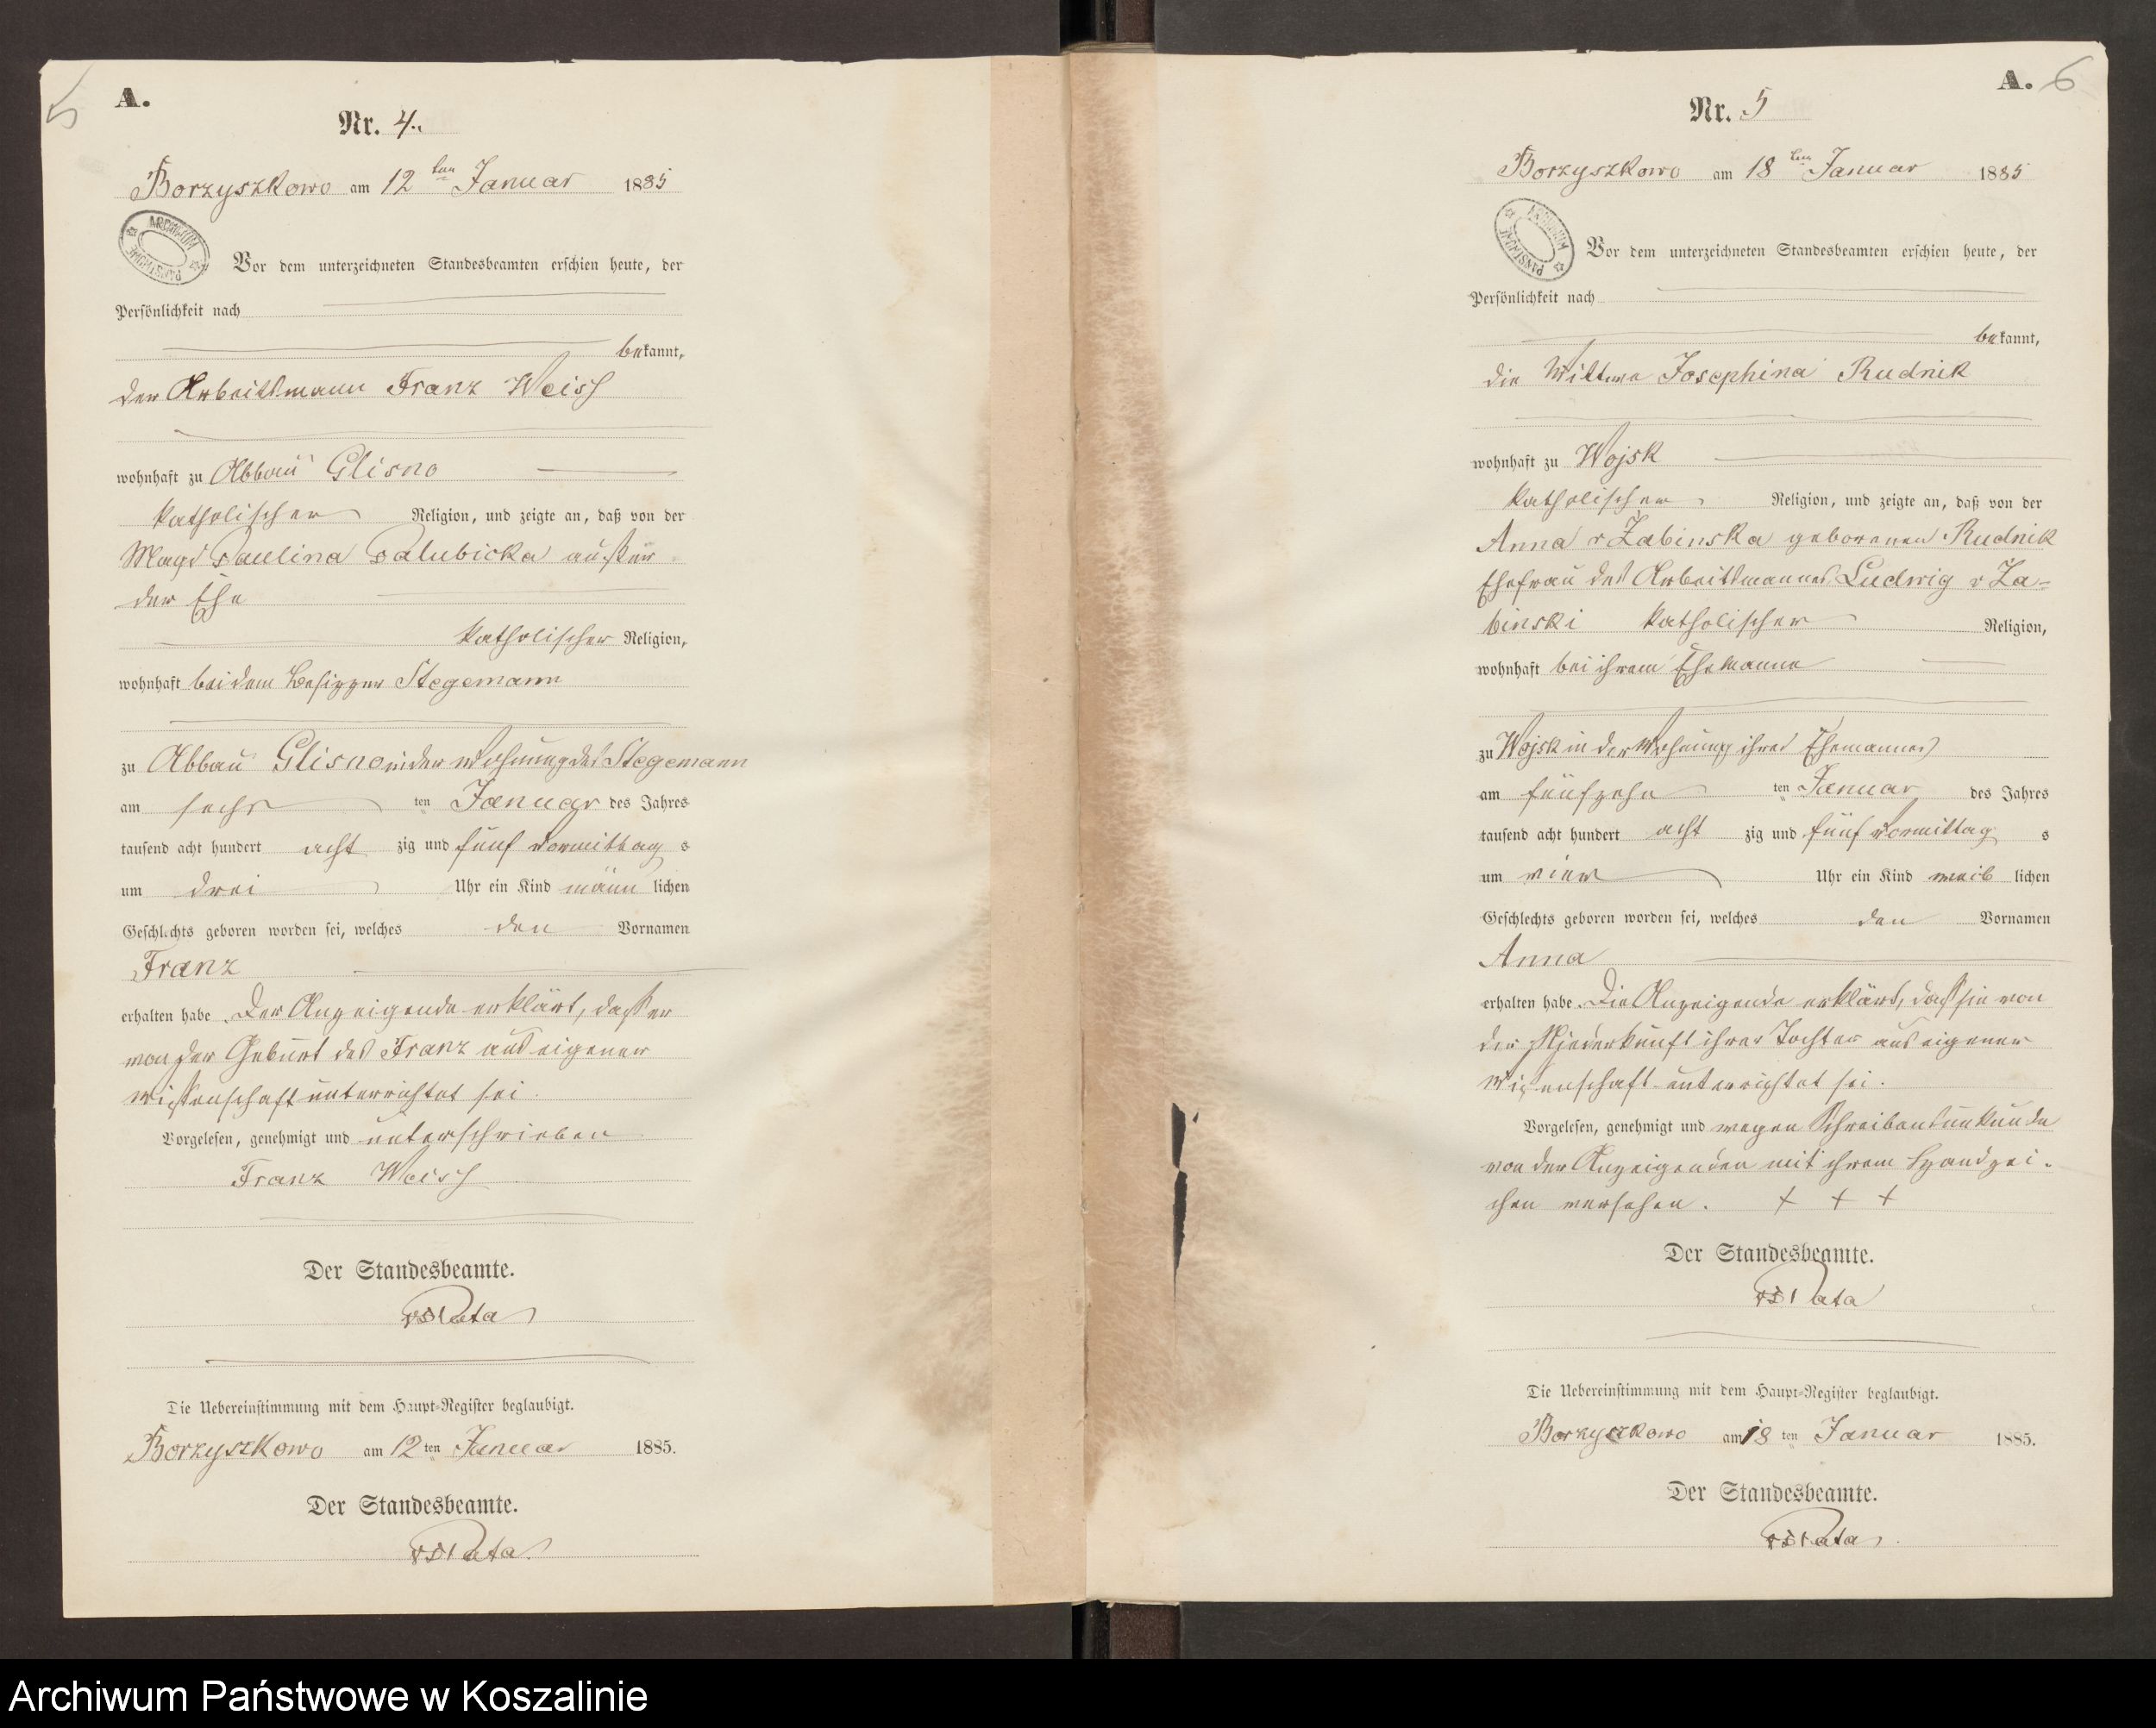 5
A.
Nr. 4.
Borzyszkowo am 12 ten Januar 1885
ARCHIWUM PAŃSTWOWE
Vor dem unterzeichneten Standesbeamten erschien heute, der
Persönlichkeit nach
bekannt,
der Arbeitsmann Franz Weiss
wohnhaft zu Abbau Glisno
katholischer Religion, und zeigte an, daß von der
Magd Paulina Palubicka außer
der Ehe
katholischer Religion,
wohnhaft bei dem Besitzer Stegemann
zu Abbau Glisno in der Wohnung des Stegemann
am sechs ten Januar des Jahres
tausend acht hundert acht zig und fünf Vormittag s
um drei Uhr ein Kind männ lichen
Geschlechts geboren worden sei, welches den Vornamen
Franz
erhalten habe. Der Anzeigende erklärt, daß er
von der Geburt des Franz aus eigener
Wissenschaft unterrichtet sei.
Vorgelesen, genehmigt und unterschrieben
Franz Weiss
Der Standesbeamte.
Die Uebereinstimmung mit dem Haupt-Register beglaubigt.
Borzyszkowo am 12 ten Januar 1885.
Der Standesbeamte.
A. 6
Nr. 5
Borzyszkowo am 18 ten Januar 1885
ARCHIWUM PAŃSTWOWE
Vor dem unterzeichneten Standesbeamten erschien heute, der
Persönlichkeit nach
bekannt,
die Wittwe Josephina Rudnik
wohnhaft zu Wojsk
katholischer Religion, und zeigte an, daß von der
Anna v Żabinska geborenen Rudnik
Ehefrau des Arbeitsmannes Ludwig v Za-
binski katholischer Religion,
wohnhaft bei ihrem Ehemanne
zu Wojsk in der Wohnung ihres Ehemannes
am fünfzehn ten Januar des Jahres
tausend acht hundert acht zig und fünf Vormittag s
um vier Uhr ein Kind weib lichen
Geschlechts geboren worden sei, welches den Vornamen
Anna
erhalten habe. Die Anzeigende erklärt, daß sie von
der Niederkunft ihrer Tochter aus eigener
Wissenschaft unterrichtet sei.
Vorgelesen, genehmigt und wegen Schreibensunkunde
von der Anzeigenden mit ihrem Handzei-
chen versehen. + + +
Der Standesbeamte.
Die Uebereinstimmung mit dem Haupt-Register beglaubigt.
Borzyszkowo am 18 ten Januar 1885.
Der Standesbeamte.
Archiwum Państwowe w Koszalinie